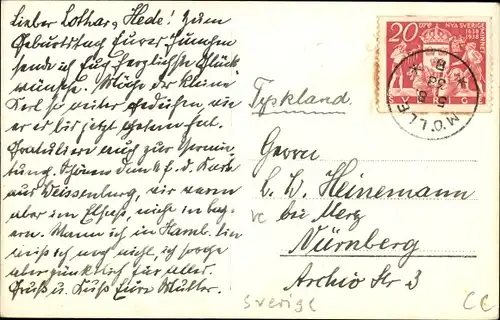 Lieber Lothar, Hede! Zum
Geburtstag Eures Jungen
sende ich Euch herzlichste Glück
wünsche. Möge der kleine
Kerl so weiter gedeihen wie
er es bis jetzt getan hat.
Gratuliere auch zur
Schönen Dank f. d. Karte
aus Weissenburg, wir waren
aber im Elsass, nicht in Bay-
ern. Wann ich in Hamb. bin
weiß ich noch nicht, ich sorge
aber pünktlich für alles.
Gruß u. Kuß Eure Mutter.
20 ÖRE
NYA SVERIGE
MINNET
1638
1938
MÖLLE
5 8 38
Tyskland.
Herrn
L. W. Heinemann
bei Merz
Nürnberg
Archiv Str 3
Sverige
CC